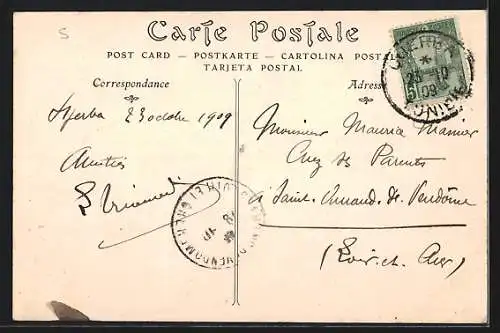 5
Carte Postale
POST CARD — POSTKARTE — CARTOLINA POSTA
TARJETA POSTAL
Correspondance
Adress
DJERBA
23 10
09
TUNISIE
Djerba 23 octobre 1909
Amitiés
Monsieur Maurice
Chez ses Parents
à Saint-Amand-de-Vendôme
(Loir-et-Cher)